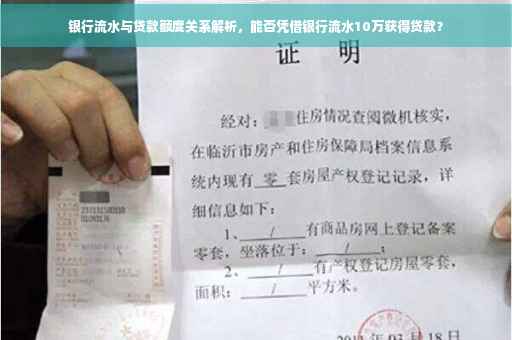 银行流水与贷款额度关系解析，能否凭借银行流水10万获得贷款？
证 明
经对：住房情况查阅微机核实，
在临沂市房产和住房保障局档案信息系
统内现有 零 套房屋产权登记记录，详
细信息如下：
1、 / 有商品房网上登记备案
零套，坐落位于： / ；
2、 / 有产权登记房屋零套，
面积： / 平方米。
03 月 18 日